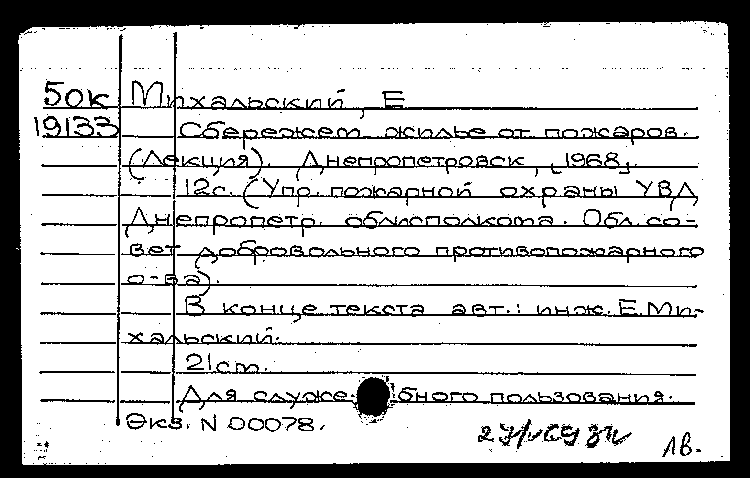 50к Михальский, Е
19133 Сбережем жилье от пожаров.
(Лекция). Днепропетровск, [1968].
12с. (Упр. пожарной охраны УВД
Днепропетр. облисполкома. Обл. со-
вет добровольного противопожарного
о-ва).
В конце текста авт.: инж. Е. Ми-
хальский.
21 cm.
Для служе- бного пользования.
Экз. N 00078.
ЛВ.